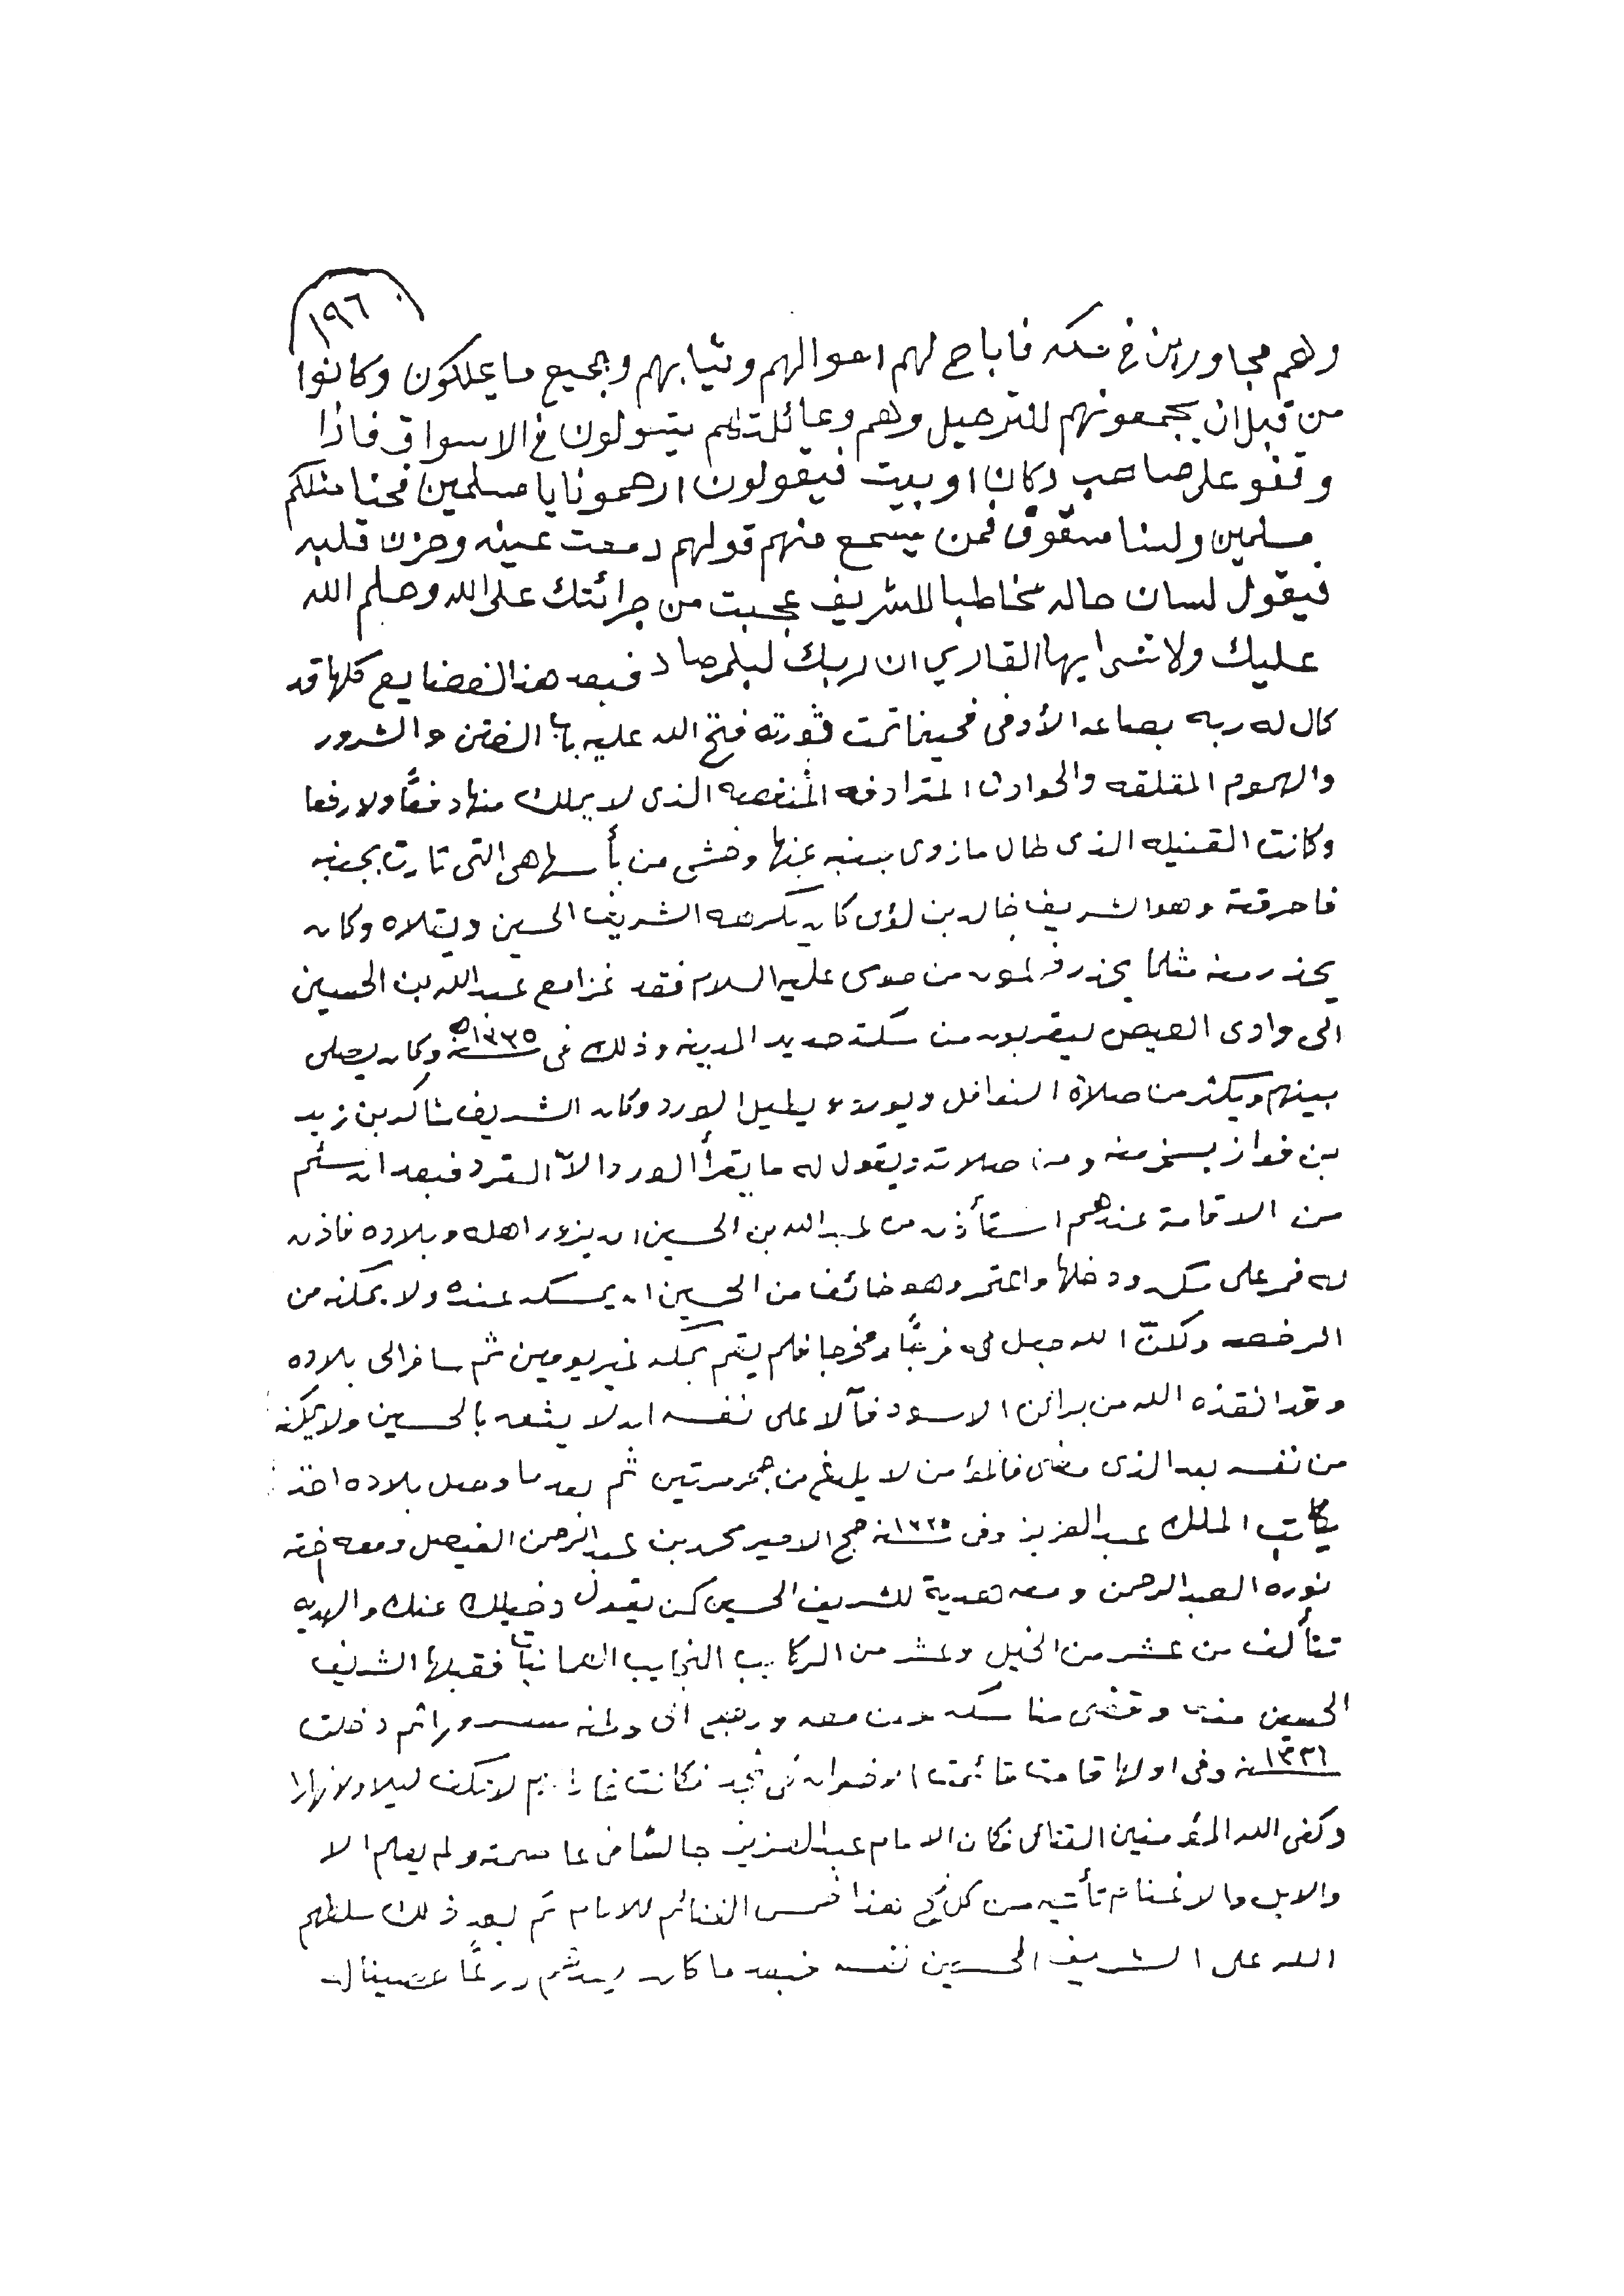 ١٩٦
وهم مجاورين في مكه فاباح لهم اموالهم وثيابهم وجميع ما يملكون وكانوا
من قبل ان يجمعونهم للترحيل وهم وعائلتهم يتسولون في الاسواق فاذا
وقفو على صاحب دكان او بيت فيقولون ارحمونا يا مسلمين فحنا مثلكم
مسلمين ولنا حقوق فمن يسمع منهم قولهم دمعت عينه وحزن قلبه
فيقول لسان حاله مخاطبا للشريف عجبت من جرائتك على الله وحلم الله
عليك ولا تنس ايها القاري ان ربك لبلمرصاد فبعد هذا الفضايع كلها قد
كال له ربه بصاعه الأوفى فحينما تمت ثورته فتح الله عليه باب الفتن والشرور
والهموم المقلقه والحوادث المترادفه المنغصه الذى لا يملك منها دفعًا ولا رفعا
وكانت القنبله الذى طال ما زوى بينه عنها وخشى من بأسها هى التى ثارت بجنبه
فاحرقته وهو الشريف خالد بن لؤى كان يكرهه الشريف الحسين ويقلاه وكان
يحذر منه مثلما يحذر فرعون من موسى عليه السلام فقد غزا مع عبدالله بن الحسين
الى وادى العيص ليقربون من سكة حديد المدينه وذلك فى سنة ١٣٣٥ه وكان يصلى
بينهم ويكثر من صلاة النوافل ويورد ويطيل الورد وكان الشريف شاكر بن زيد
بن فواز يسخر منه ومن صلاته ويقول له ما يقرأ الورد الا القرد فبعد ان سئم
من الاقامة عندهم استأذن من عبدالله بن الحسين ان يزور اهله وبلاده فاذن
له فمر على مكه ودخلها واعتمر وهو خائفا من الحسين ان يمسكه عنده ولا يمكنه من
الرخصه ولكن الله جعل له فرجًا ومخرجا فلم يقم بمكه غير يومين ثم سافر الى بلاده
وقد انقذه الله من براثن الاسود فآلا على نفسه ان لا يثق بالحسين ولا يمكنه
من نفسه بعد الذى مضى فالمؤمن لا يلدغ من جحر مرتين ثم بعد ما وصل بلاده اخذ
يكاتب الملك عبدالعزيز وفى سنة ١٣٣٥ حج الامير محمد بن عبدالرحمن الفيصل ومعه اخته
نوره العبدالرحمن ومعه هدية للشريف الحسين كمن يقول دخيلك عنك والهديه
تتألف من عشر من الخيل وعشر من الركايب النجايب العمانيات فقبلها الشريف
الحسين منه وقضى مناسكه ومن معه ورجع الى وطنه مسرورا ثم دخلت
سنة ١٣٣٦ وفى اولها قامت قائمت الاخوان فى نجد فكانت غاراتهم لا تكف ليلا ولا نهارا
وكفى الله المؤمنين القتال فكان الامام عبدالعزيز جالسًا فى عاصمته ولم يعلم الا
والابل والاغنام تأتيه من كل فج هذا خمس الغنائم للامام ثم بعد ذلك سلطهم
الله على الشريف الحسين نفسه فبعد ما كان درعًا حصينا له